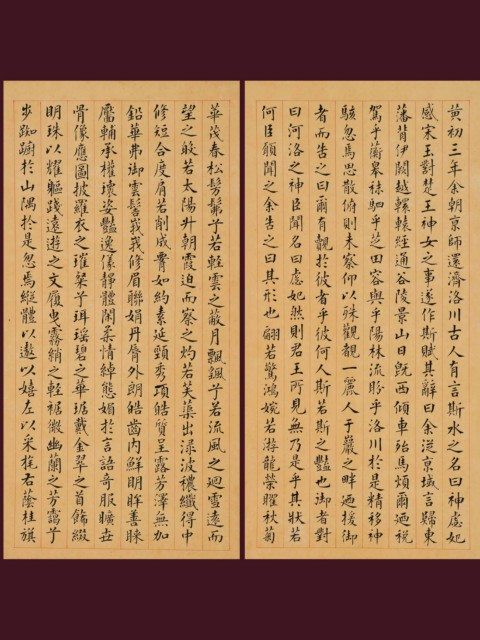 黃初三年余朝京師還濟洛川古人有言斯水之名曰神虙妃
感宋玉對楚王神女之事遂作斯賦其辭曰余從京域言歸東
藩背伊闕越轘轅經通谷陵景山日既西傾車殆馬煩爾迺稅
駕乎蘅皋秣駟乎芝田容與乎陽林流盼乎洛川於是精移神
駭忽焉思散俯則未察仰以殊觀覩一麗人于巖之畔迺援御
者而告之曰爾有覿於彼者乎彼何人斯若斯之豔也御者對
曰河洛之神臣聞名曰虙妃然則君王所見無乃是乎其狀若
何臣願聞之余告之曰其形也翩若驚鴻婉若游龍榮曜秋菊
華茂春松髣髴兮若輕雲之蔽月飄颻兮若流風之迴雪遠而
望之皎若太陽升朝霞迫而察之灼若芙蕖出淥波穠纖得中
修短合度肩若削成腰如約素延頸秀項皓質呈露芳澤無加
鉛華弗御雲髻峩峩修眉聯娟丹脣外朗皓齒內鮮明眸善睞
靨輔承權瓌姿豔逸儀靜體閑柔情綽態媚於言語奇服曠世
骨像應圖披羅衣之璀粲兮珥瑤碧之華琚戴金翠之首飾綴
明珠以耀軀踐遠遊之文履曳霧綃之輕裾微幽蘭之芳藹兮
步踟躕於山隅於是忽焉縱體以遨以嬉左以采旄右蔭桂旗